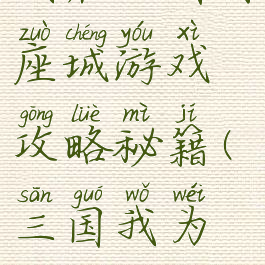 zuò chéng yóu xì
座城游戏
gōng lüè mì jí
攻略秘籍(
sān guó wǒ wéi
三国我为